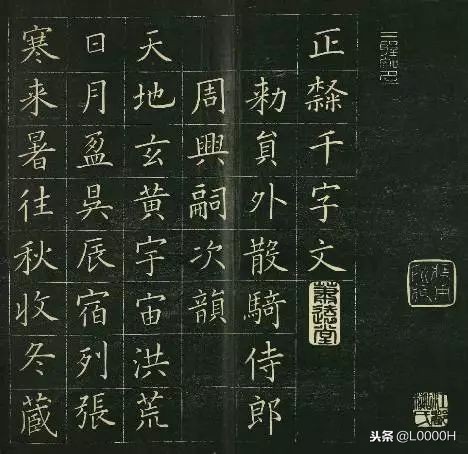 正隸千字文
勑員外散騎侍郎
周興嗣次韻
天地玄黃宇宙洪荒
日月盈昃辰宿列張
寒来暑往秋收冬藏
头条 @L0000H